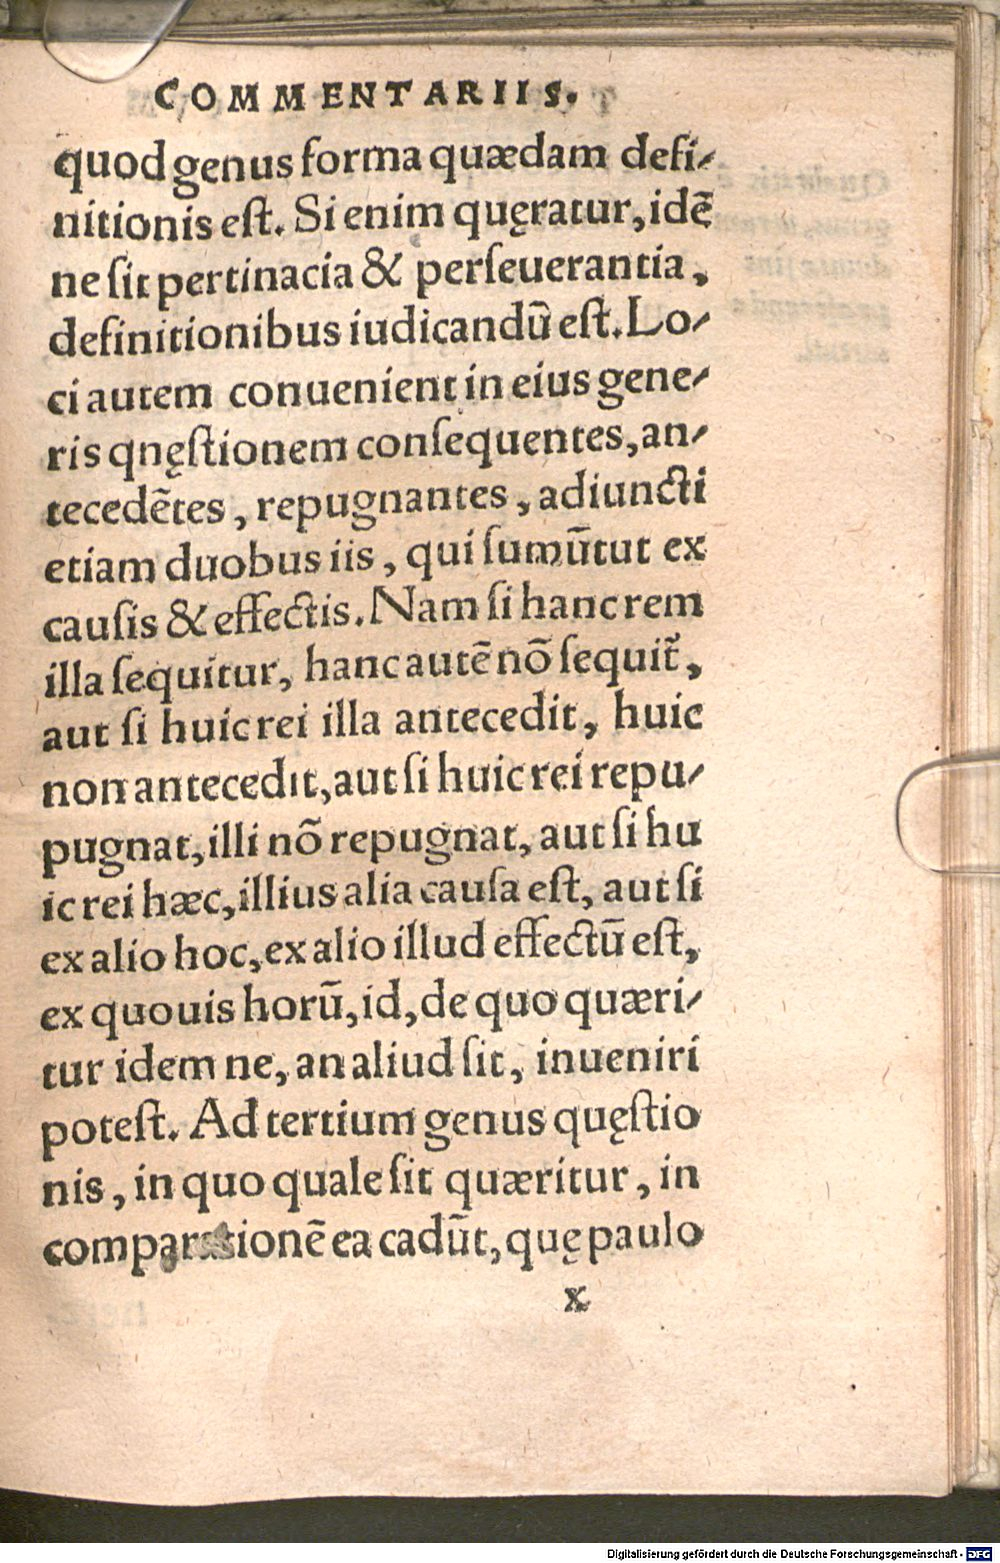 COMMENTARIIS.
quod genus forma quædam defi-
nitionis est. Si enim quęratur, idē
ne sit pertinacia & perseuerantia,
definitionibus iudicandū est. Lo-
ci autem conuenient in eius gene-
ris qnęstionem consequentes, an-
tecedētes, repugnantes, adiuncti
etiam duobus iis, qui sumūtut ex
causis & effectis. Nam si hanc rem
illa sequitur, hanc autē nō sequit᷑,
aut si huic rei illa antecedit, huic
non antecedit, aut si huic rei repu-
pugnat, illi nō repugnat, aut si hu
ic rei hæc, illius alia causa est, aut si
ex alio hoc, ex alio illud effectū est,
ex quouis horū, id, de quo quæri-
tur idem ne, an aliud sit, inueniri
potest. Ad tertium genus quęstio
nis, in quo quale sit quæritur, in
comparationē ea cadūt, quę paulo
x
Digitalisierung gefördert durch die Deutsche Forschungsgemeinschaft - DFG